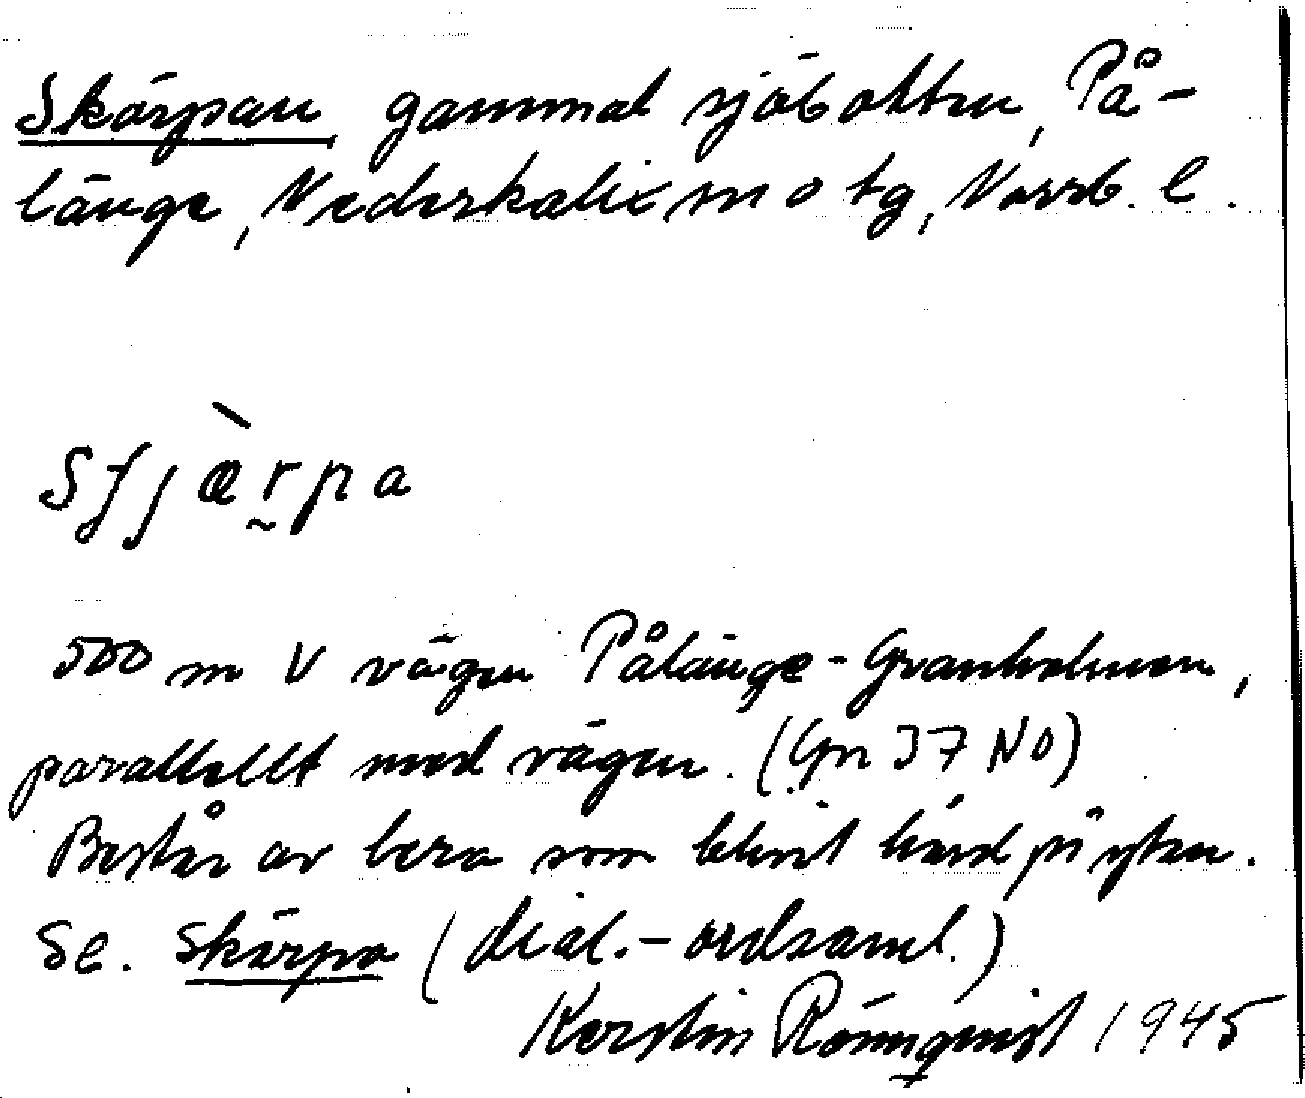 Skärpan, gammal sjöbotten, På-
länge, Nederkalix sn o tg, Norrb. l.
Sʃjæ̀r̰pa
500 m V vägen Pålänge-Granholmen,
parallellt med vägen. (Gn 37 NO)
Består av lera som blivit hård på ytan.
Se. Skärpa (dial.-ordsaml.)
Kerstin Rönnqvist 1945